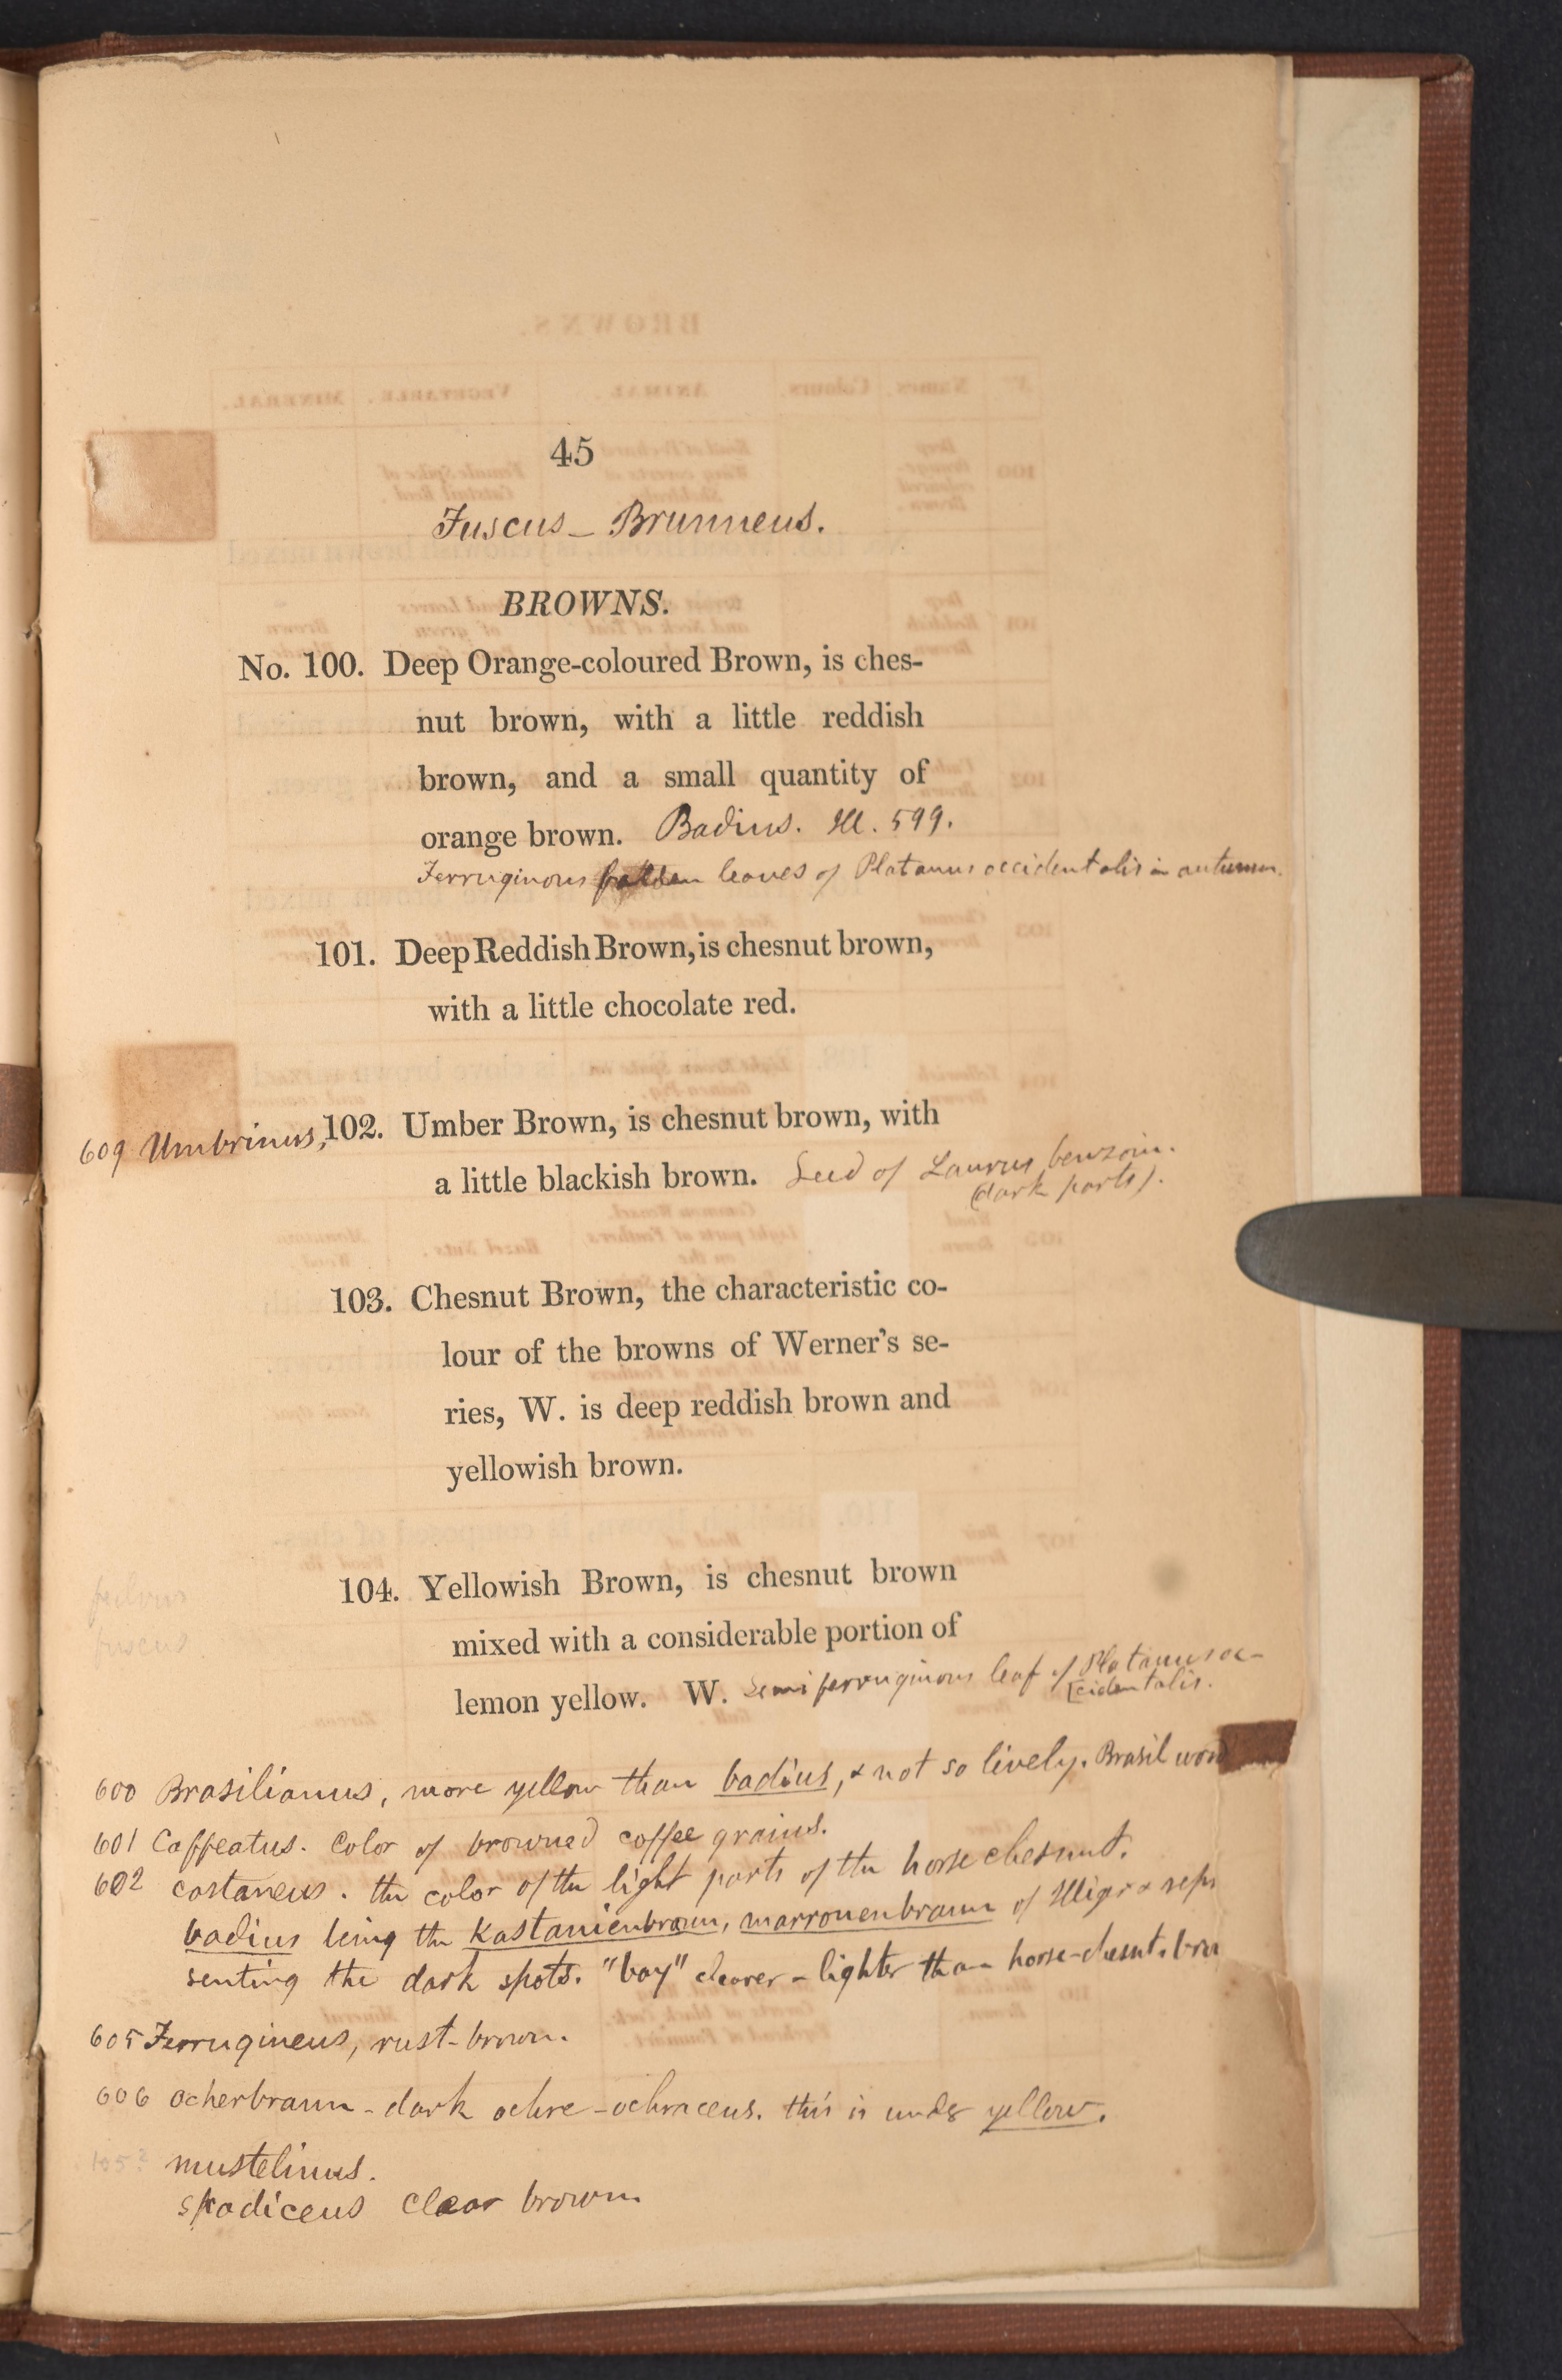 45
Fuscus – Brunneus.
BROWNS.
No. 100. Deep Orange-coloured Brown, is ches-
nut brown, with a little reddish
brown, and a small quantity of
orange brown. Badius. Ill. 599.
Ferruginous fallen leaves of Platanus occidentalis in autumn.
101. Deep Reddish Brown, is chesnut brown,
with a little chocolate red.
609 Umbrinus, 102. Umber Brown, is chesnut brown, with
a little blackish brown. Seed of Laurus benzoin.
(dark parts).
103. Chesnut Brown, the characteristic co-
lour of the browns of Werner's se-
ries, W. is deep reddish brown and
yellowish brown.
104. Yellowish Brown, is chesnut brown
fuscus
mixed with a considerable portion of
lemon yellow. W. Semiferruginous leaf of Platanus oc-
[cidentalis.
600 Brasilianus, more yellow than badius, & not so lively. Brasil wood
601 Caffeatus. Color of browned coffee grains.
602 castaneus. the color of the light parts of the horse chesnut.
badius being the Kastanienbraun, marronenbraun of Illiger & repre
senting the dark spots. "bay" clearer – lighter than horse-chesnut. brn
605 Ferrugineus, rust-brown.
606 ocherbraun – dark ochre – ochraceus. this is under yellow.
105? mustelinus.
spadiceus clear brown